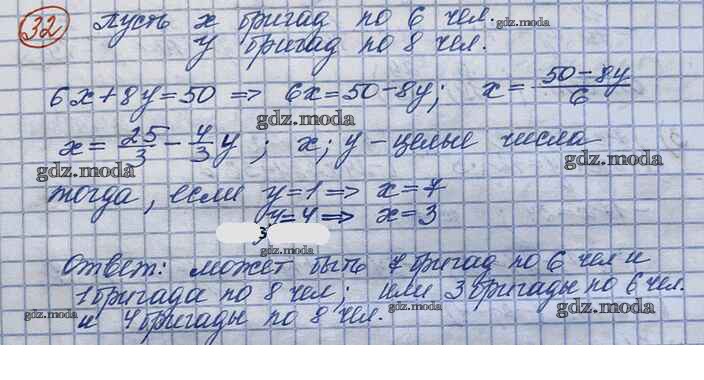 32 Пусть x бригад по 6 чел. gdz.moda
y бригад по 8 чел.
6x+8y=50 => 6x=50-8y; x= 50-8y/6
gdz.moda
x= 25/3 - 4/3 y ; x; y - целые числа
gdz.moda gdz.moda
тогда, если y=1 => x=7
y=4 => x=3
3
gdz.moda
Ответ: может быть 7 бригад по 6 чел и
1 бригада по 8 чел; или 3 бригады по 6 чел.
gdz.moda gdz.moda gdz.moda
и 4 бригады по 8 чел.